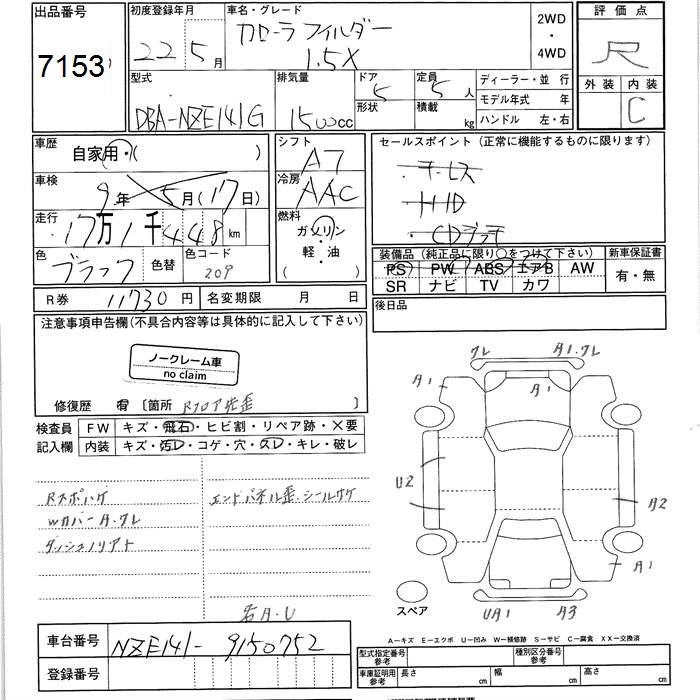 出品番号 初度登録年月 車名・グレード 2WD・4WD 評価点
7153 22年5月 カローラ フィルダー 1.5X R
外装 内装 C
型式 排気量 ドア 形状 定員 積載 ディーラー・並行
DBA-NZE141G 1500cc 5 5人 kg モデル年式 年
ハンドル 左・右
車歴 自家用・( ) シフト A7 セールスポイント(正常に機能するものに限ります)
車検 9年5月(17日) 冷房 AAC キーレス
HID
CDデッキ
走行 17万1千448km 燃料 ガソリン・軽油 ( )
色 ブラック 色替 色コード 209
装備品(純正品に限り○をつけて下さい) 新車保証書
PS PW ABS エアB AW 有・無
SR ナビ TV カワ
R券 11730円 名変期限 月 日 後日品
注意事項申告欄(不具合内容等は具体的に記入して下さい)
ノークレーム車
no claim
修復歴 有 〔箇所 Rフロア先歪 〕
検査員 FW キズ・飛石・ヒビ割・リペア跡・×要
記入欄 内装 キズ・汚レ・コゲ・穴・スレ・キレ・破レ
Rスポハゲ エンドパネル歪.シールサケ
WカバーA.クレ
クレ A1.クレ
A1 A1
U2 A2
A1
スペア UA1 A3
右A.U
A-キズ E-エクボ U-凹み W-補修跡 S-サビ C-腐食 XX-交換済
車台番号 NZE141-9150752
登録番号
型式指定番号 参考 種別区分番号 参考
車庫証明用 参考 長さ cm 幅 cm 高さ cm